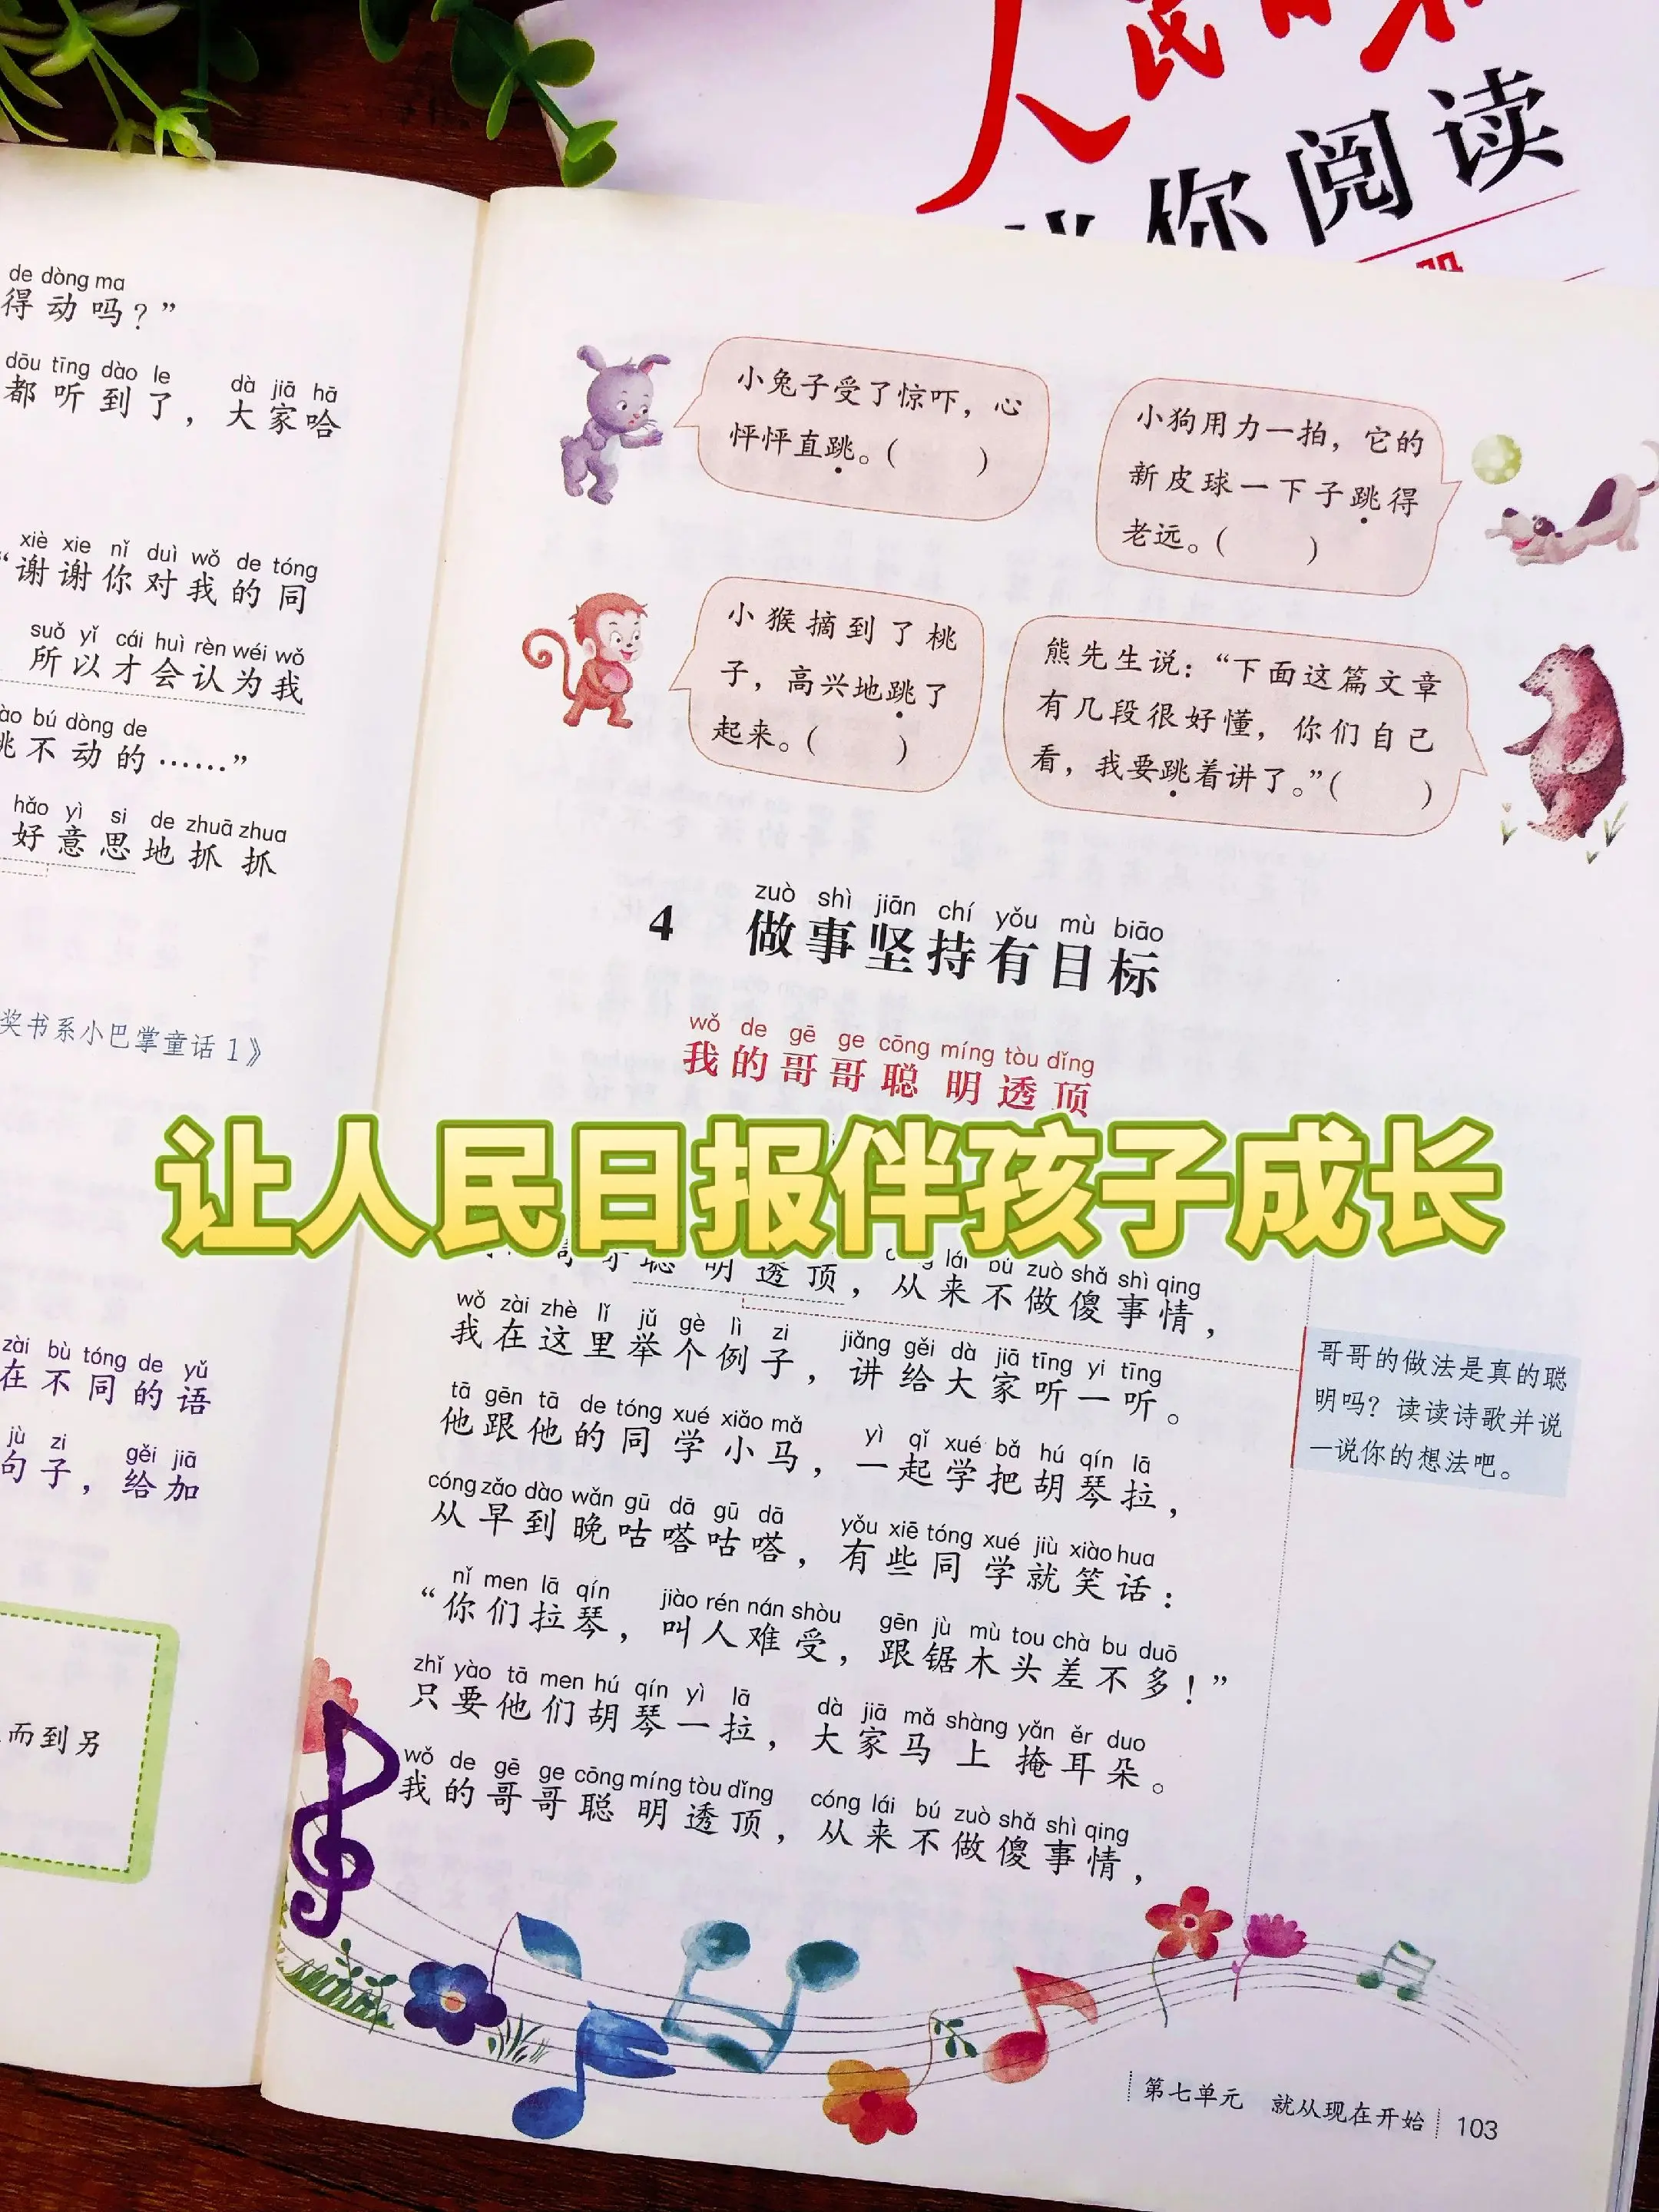 人民日
你阅读
de dòng ma
得动吗？”
dōu tīng dào le dà jiā hā
都听到了，大家哈
xiè xie nǐ duì wǒ de tóng
“谢谢你对我的同
suǒ yǐ cái huì rèn wéi wǒ
所以才会认为我
bú dòng de
不动的……”
hǎo yì si de zhuā zhua
好意思地抓抓
奖书系小巴掌童话1》
zài bù tóng de yǔ
在不同的语
jù zi gěi jiā
句子，给加
而到另
小兔子受了惊吓，心
怦怦直跳。（ ）
小狗用力一拍，它的
新皮球一下子跳得
老远。（ ）
小猴摘到了桃
子，高兴地跳了
起来。（ ）
熊先生说：“下面这篇文章
有几段很好懂，你们自己
看，我要跳着讲了。”（ ）
zuò shì jiān chí yǒu mù biāo
4 做事坚持有目标
wǒ de gē ge cōng míng tòu dǐng
我的哥哥聪明透顶
让人民日报伴孩子成长
lái bú zuò shǎ shì qing
哥哥聪明透顶，从来不做傻事情，
wǒ zài zhè lǐ jǔ gè lì zi jiǎng gěi dà jiā tīng yi tīng
我在这里举个例子，讲给大家听一听。
tā gēn tā de tóng xué xiǎo mǎ yì qǐ xué bǎ hú qín lā
他跟他的同学小马，一起学把胡琴拉，
cóng zǎo dào wǎn gū dā gū dā yǒu xiē tóng xué jiù xiào hua
从早到晚咕嗒咕嗒，有些同学就笑话：
nǐ men lā qín jiào rén nán shòu gēn jù mù tou chà bu duō
“你们拉琴，叫人难受，跟锯木头差不多！”
zhǐ yào tā men hú qín yì lā dà jiā mǎ shàng yǎn ěr duo
只要他们胡琴一拉，大家马上掩耳朵。
wǒ de gē ge cōng míng tòu dǐng cóng lái bú zuò shǎ shì qing
我的哥哥聪明透顶，从来不做傻事情，
哥哥的做法是真的聪
明吗？读读诗歌并说
一说你的想法吧。
第七单元 就从现在开始 103